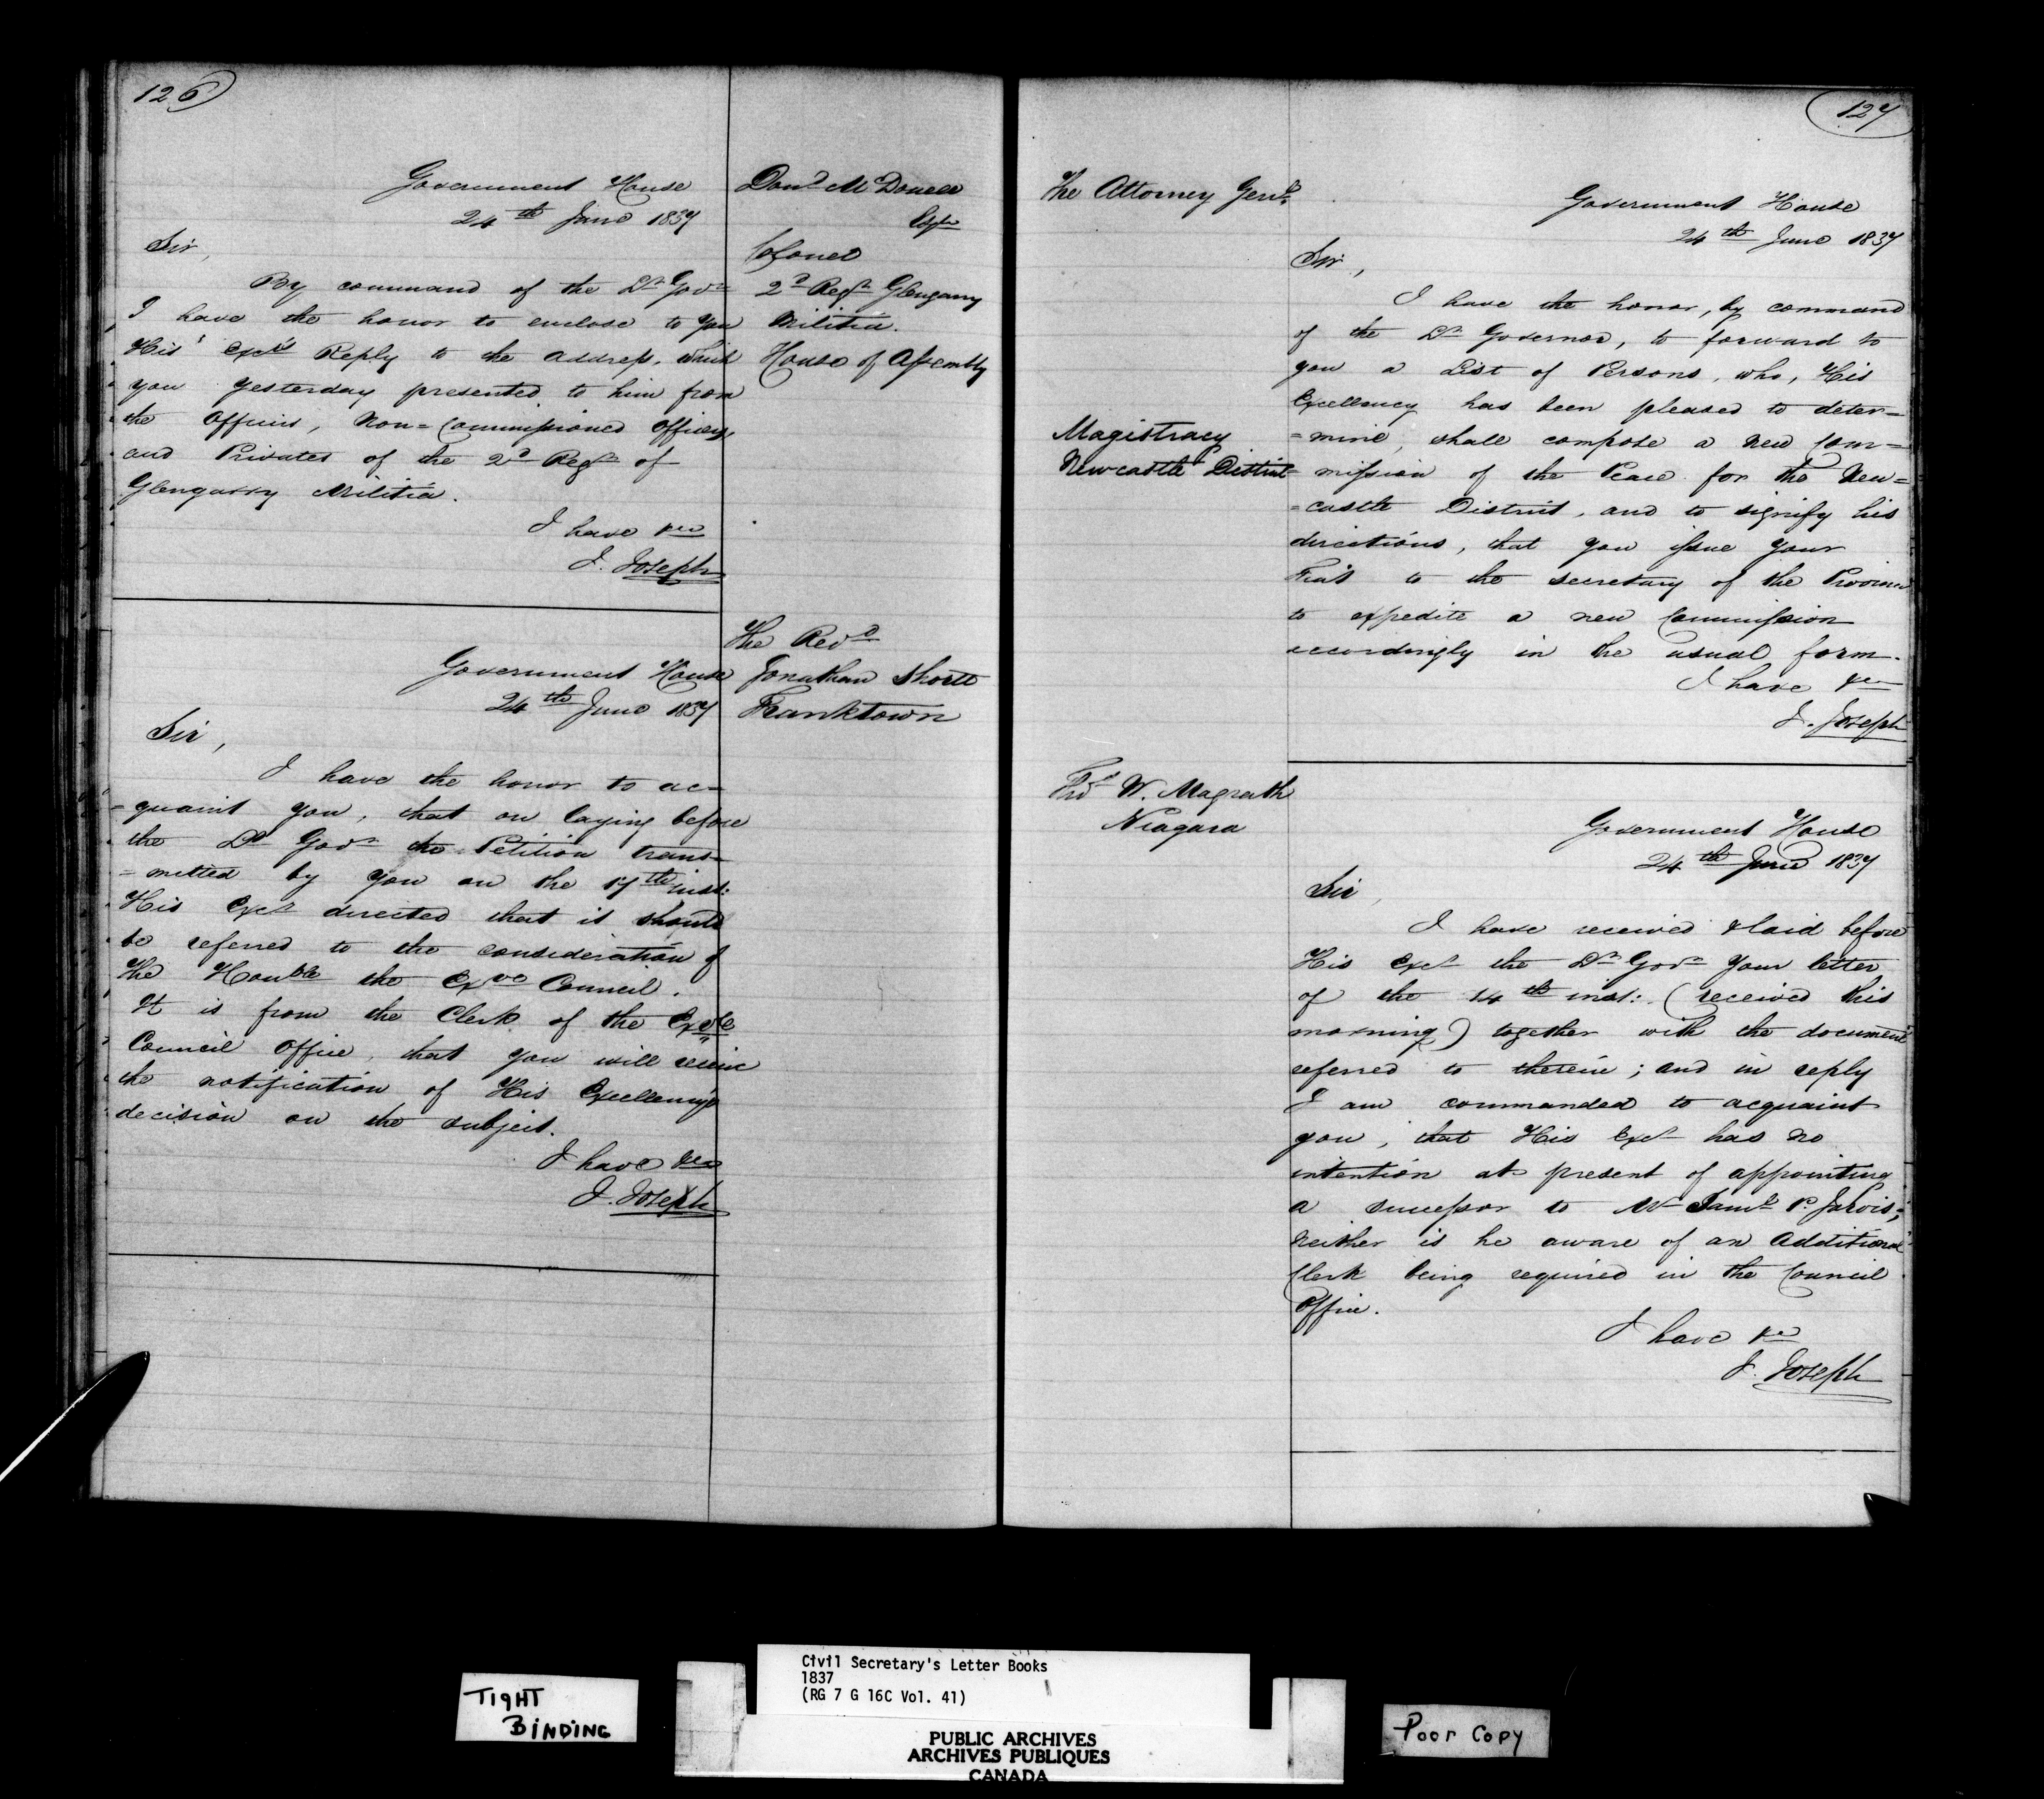 126
Government House
24th June 1837
Dond McDonell
Esqre
Colonel
2d Regt Glengarry
Militia.
House of Assembly
Sir,
By command of the Lt Govr
I have the honor to enclose to you
His Excy's Reply to the address, which
you yesterday presented to him from
the officers, Non=Commissioned officers,
and Privates of the 2d Regt of
Glengarry Militia.
I have &ca
J. Joseph
The Revd
Jonathan Shortt
Franktown
Government House
24th June 1837
Sir,
I have the honor to ac=
=quaint you, that on laying before
the Lt Govr the Petition trans=
=mitted by you on the 17th inst:
His Excy directed that it should
be referred to the consideration of
the Honble the Exve Council.
It is from the Clerk of the Exve
Council office, that you will receive
the notification of His Excellency's
decision on the subject.
I have &ca
J. Joseph
127
The Attorney Genl
Government House
24th June 1837
Sir,
I have the honor, by command
of the Lt Governor, to forward to
you a List of Persons, who, His
Excellency has been pleased to deter=
Magistracy
Newcastle District
=mine, shall compose a new Com=
=mission of the Peace for the New=
=castle District, and to signify his
directions, that you issue your
Fiat to the secretary of the Province
to expedite a new Commission
accordingly in the usual form.
I have &ca
J. Joseph
W. Magrath
Niagara
Government House
24th June 1837
Sir,
I have received & laid before
His Excy the Lt Govr your letter
of the 14th inst: (received this
morning) together with the document
referred to therein; and in reply
I am commanded to acquaint
you, that His Excy has no
intention at present of appointing
a successor to Mr Saml P. Jarvis;
neither is he aware of an Additional
Clerk being required in the Council
Office.
I have &ca
J. Joseph
TIGHT
BINDING
Civil Secretary's Letter Books
1837
(RG 7 G 16C Vol. 41)
PUBLIC ARCHIVES
ARCHIVES PUBLIQUES
CANADA
Poor Copy